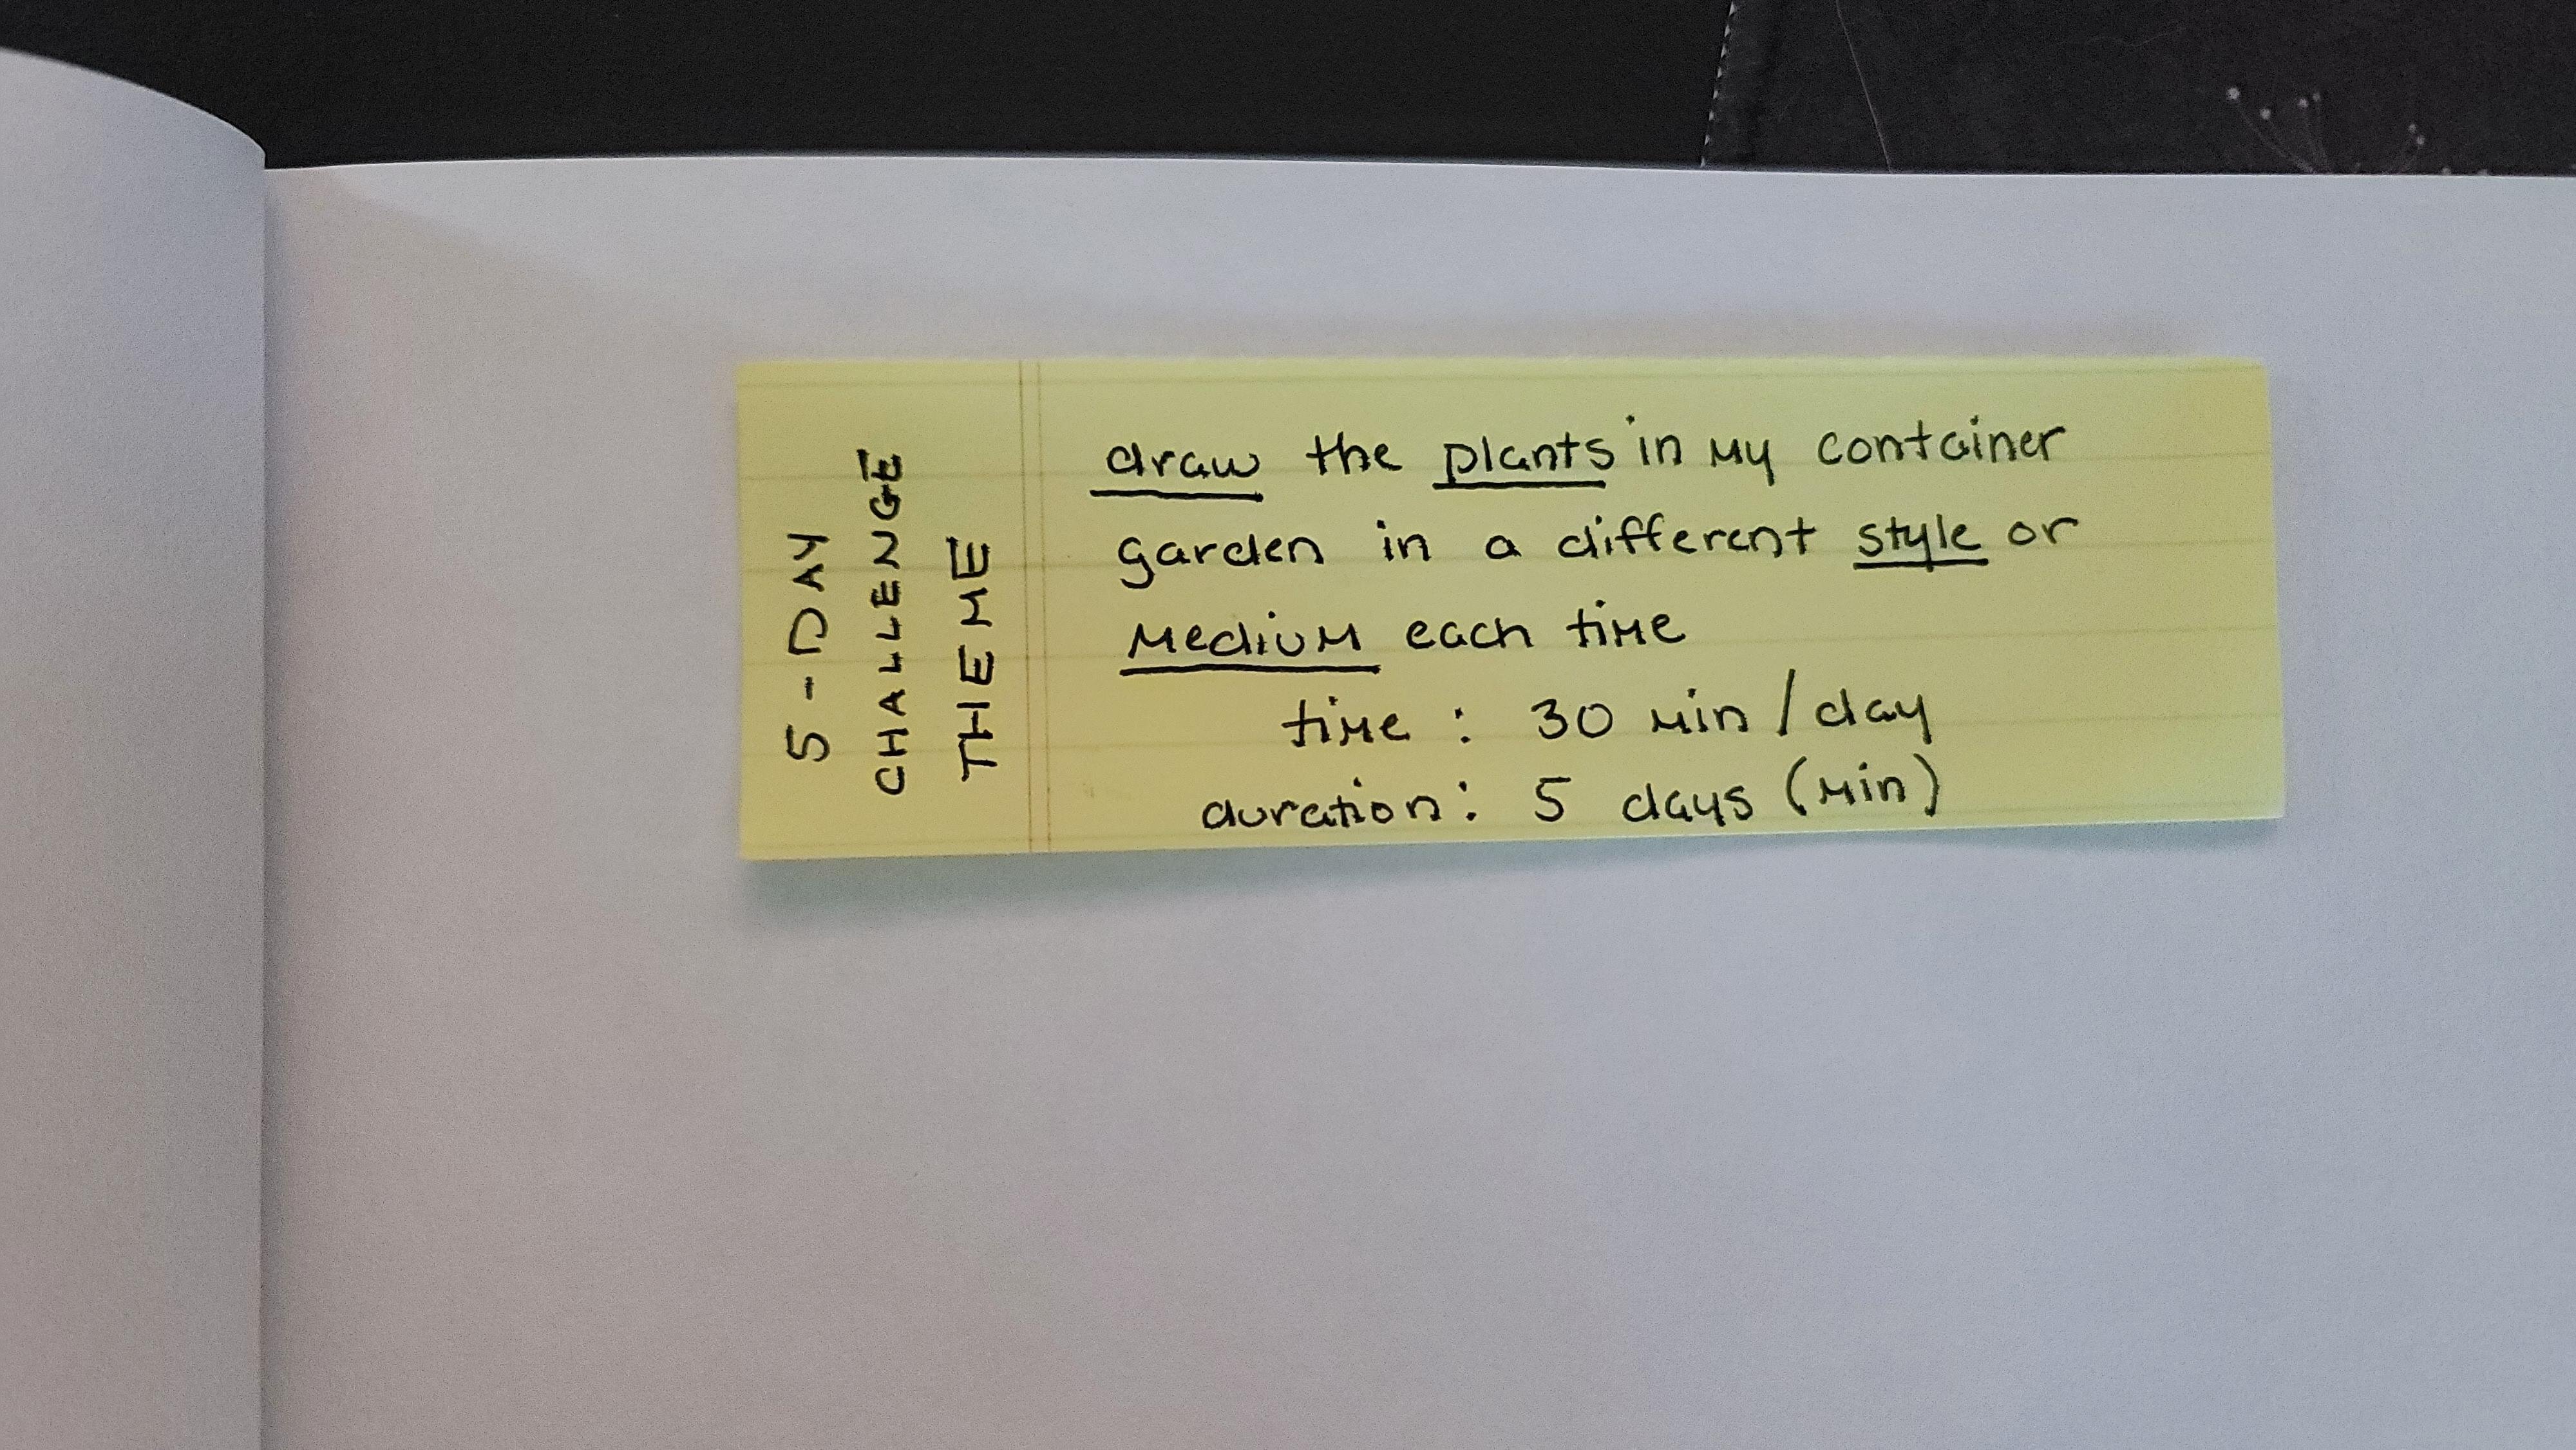 5-DAY
CHALLENGE
THEME
draw the plants in my container
garden in a different style or
medium each time
time : 30 min / day
duration: 5 days (min)